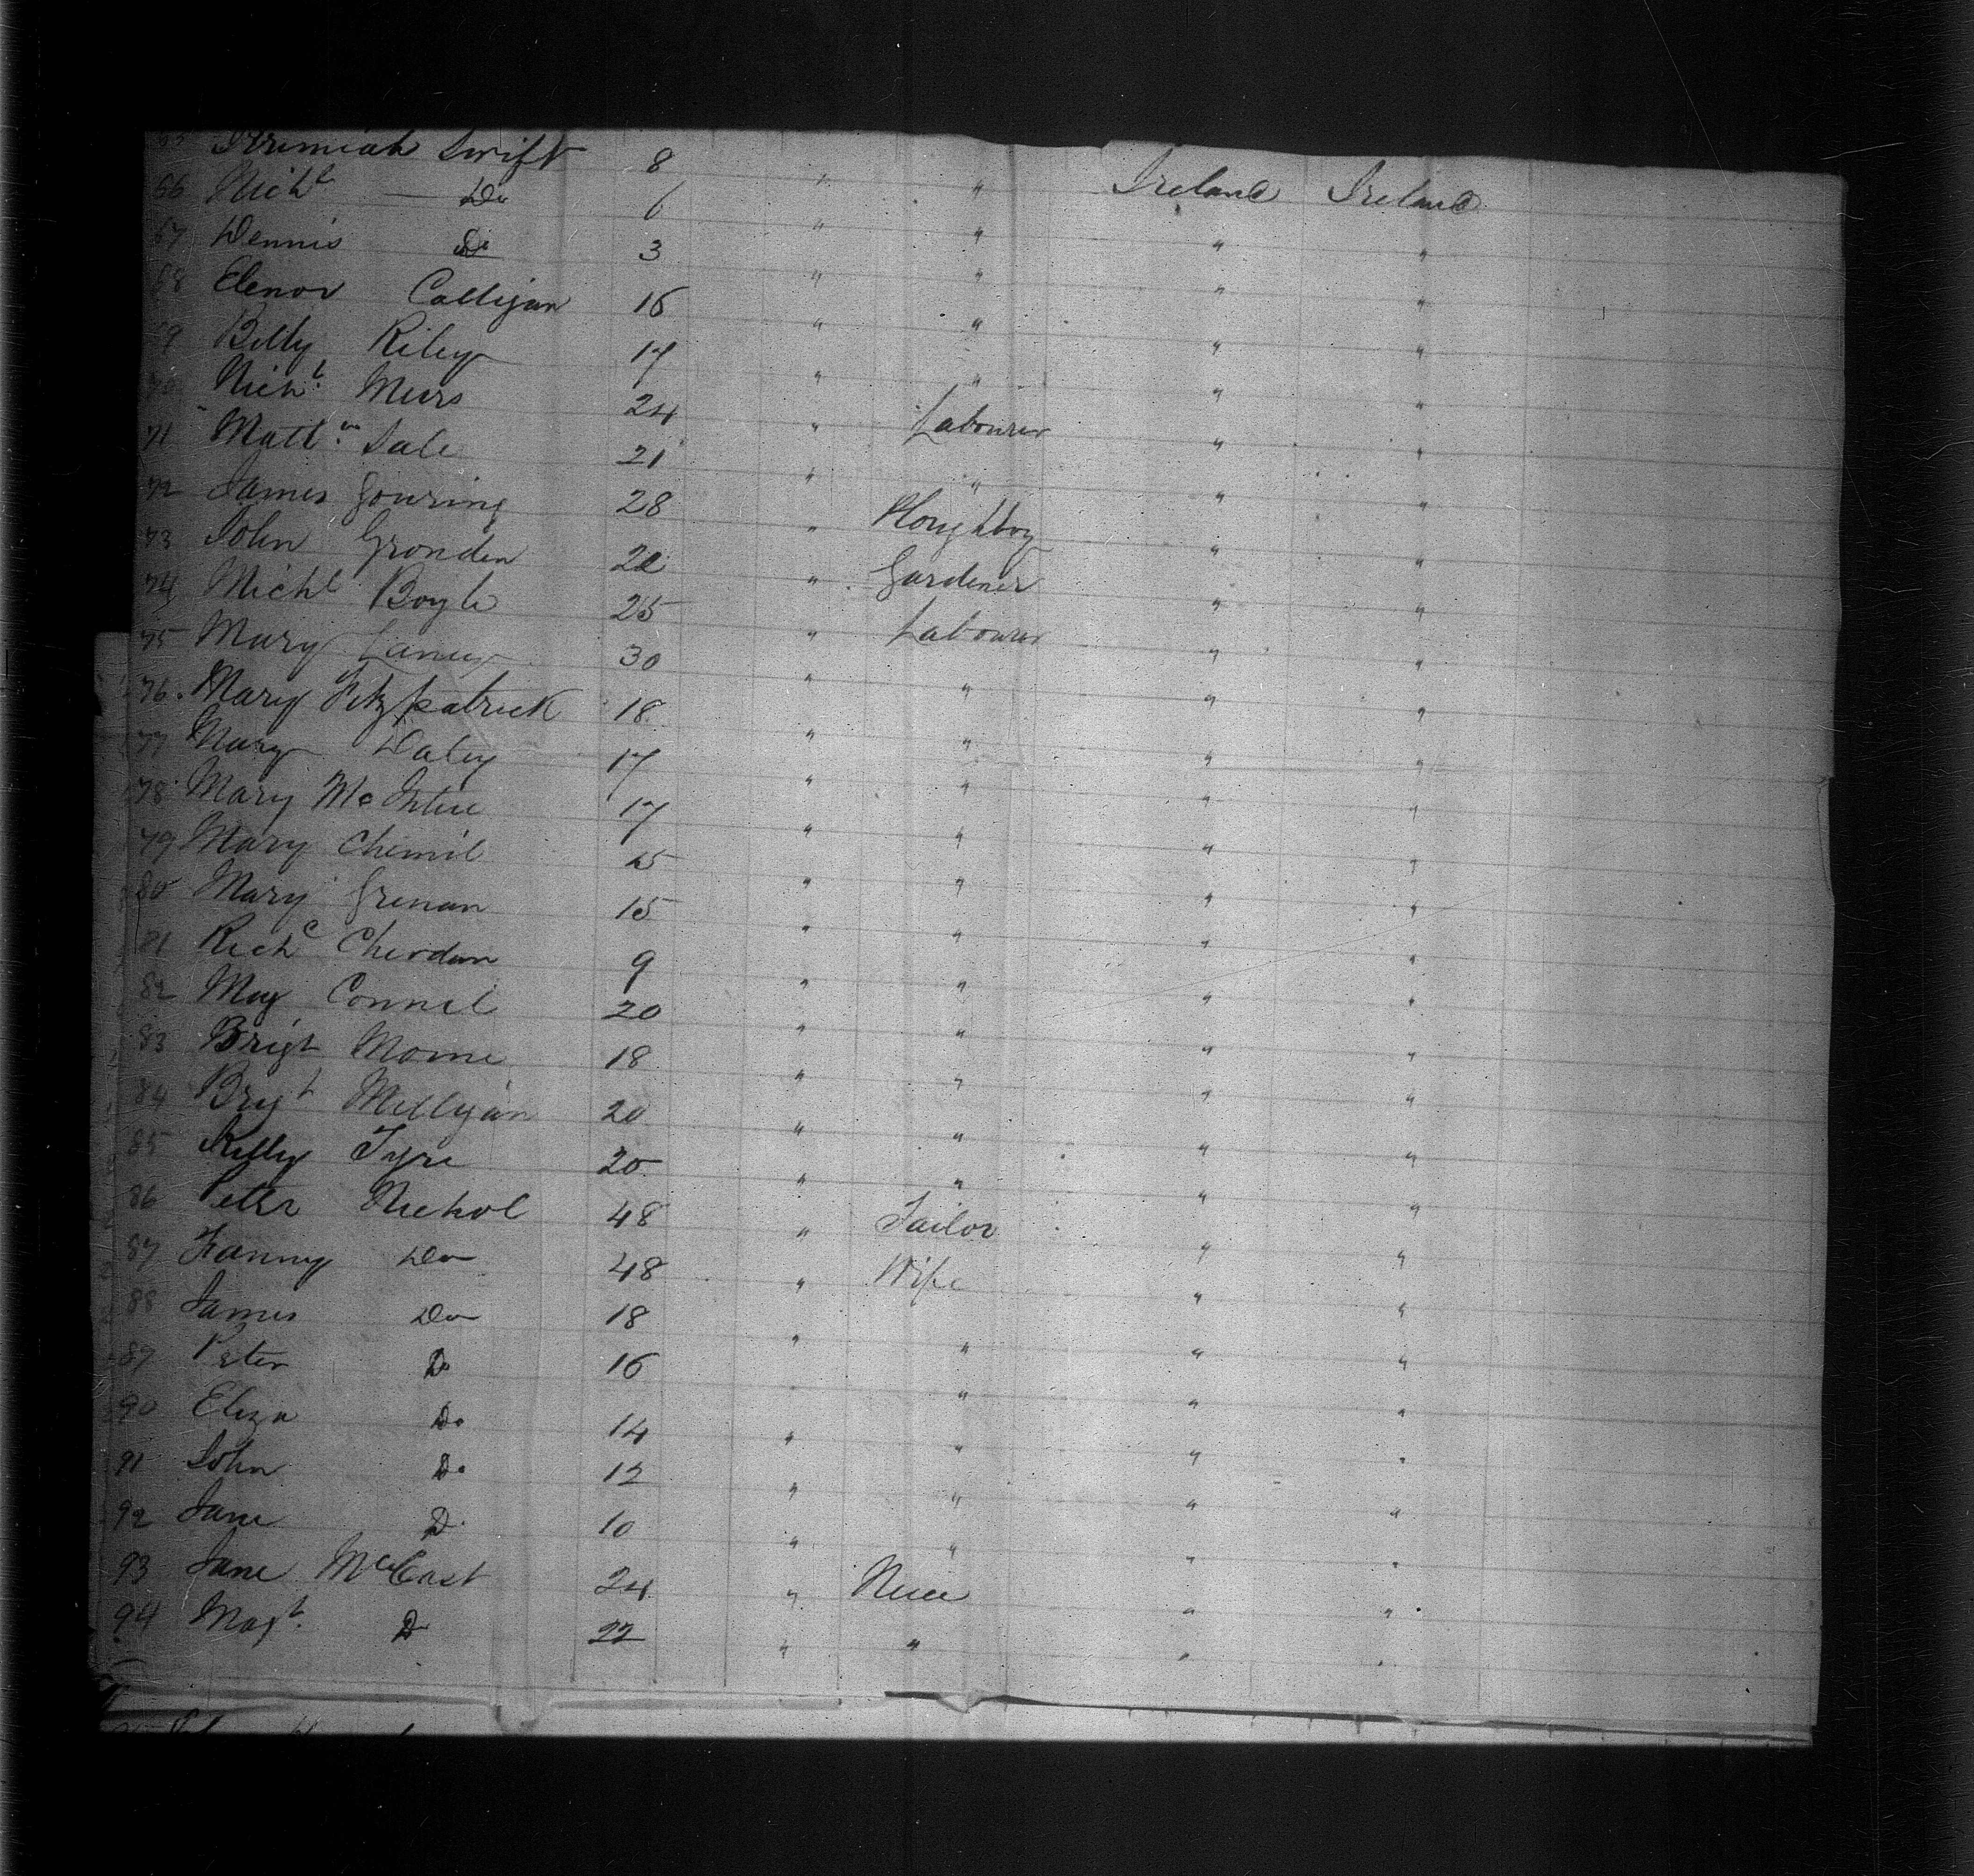 65 Jeremiah Swift 8 " " Ireland Ireland
66 Nichl — Do 6 " " " "
67 Dennis Do 3 " " " "
68 Elenor Calligan 16 " " " "
69 Billy Riley 17 " " " "
70 Nichl Murs 24 " Labourer " "
71 Mattw Sale 21 " " " "
72 James Gouring 28 " Ploughboy " "
73 John Gronden " Gardener " "
74 Michl Boyle 25 " Labourer " "
75 Mary 30 " " " "
76 Mary Fitzpatrick 18 " " " "
77 Mary Daley 17 " " " "
78 Mary McIntire 17 " " " "
79 Mary Chemil 15 " " " "
80 Mary Grenan 15 " " " "
81 Richd Cherdan 9 " " " "
82 May Connel 20 " " " "
83 Brigt Morne 18 " " " "
84 Brigt Milligan 20 " " " "
85 Kelly Tyre 20 " " " "
86 Peter Nichol 48 " Tailor " "
87 Fanny Do 48 " Wife " "
88 James Do 18 " " " "
89 Peter Do 16 " " "
90 Eliza Do 14 " " " "
91 John Do 12 " " " "
92 Jane Do 10 " " " "
93 Jane McCast 24 " " "
94 Magt Do 22 " " " "